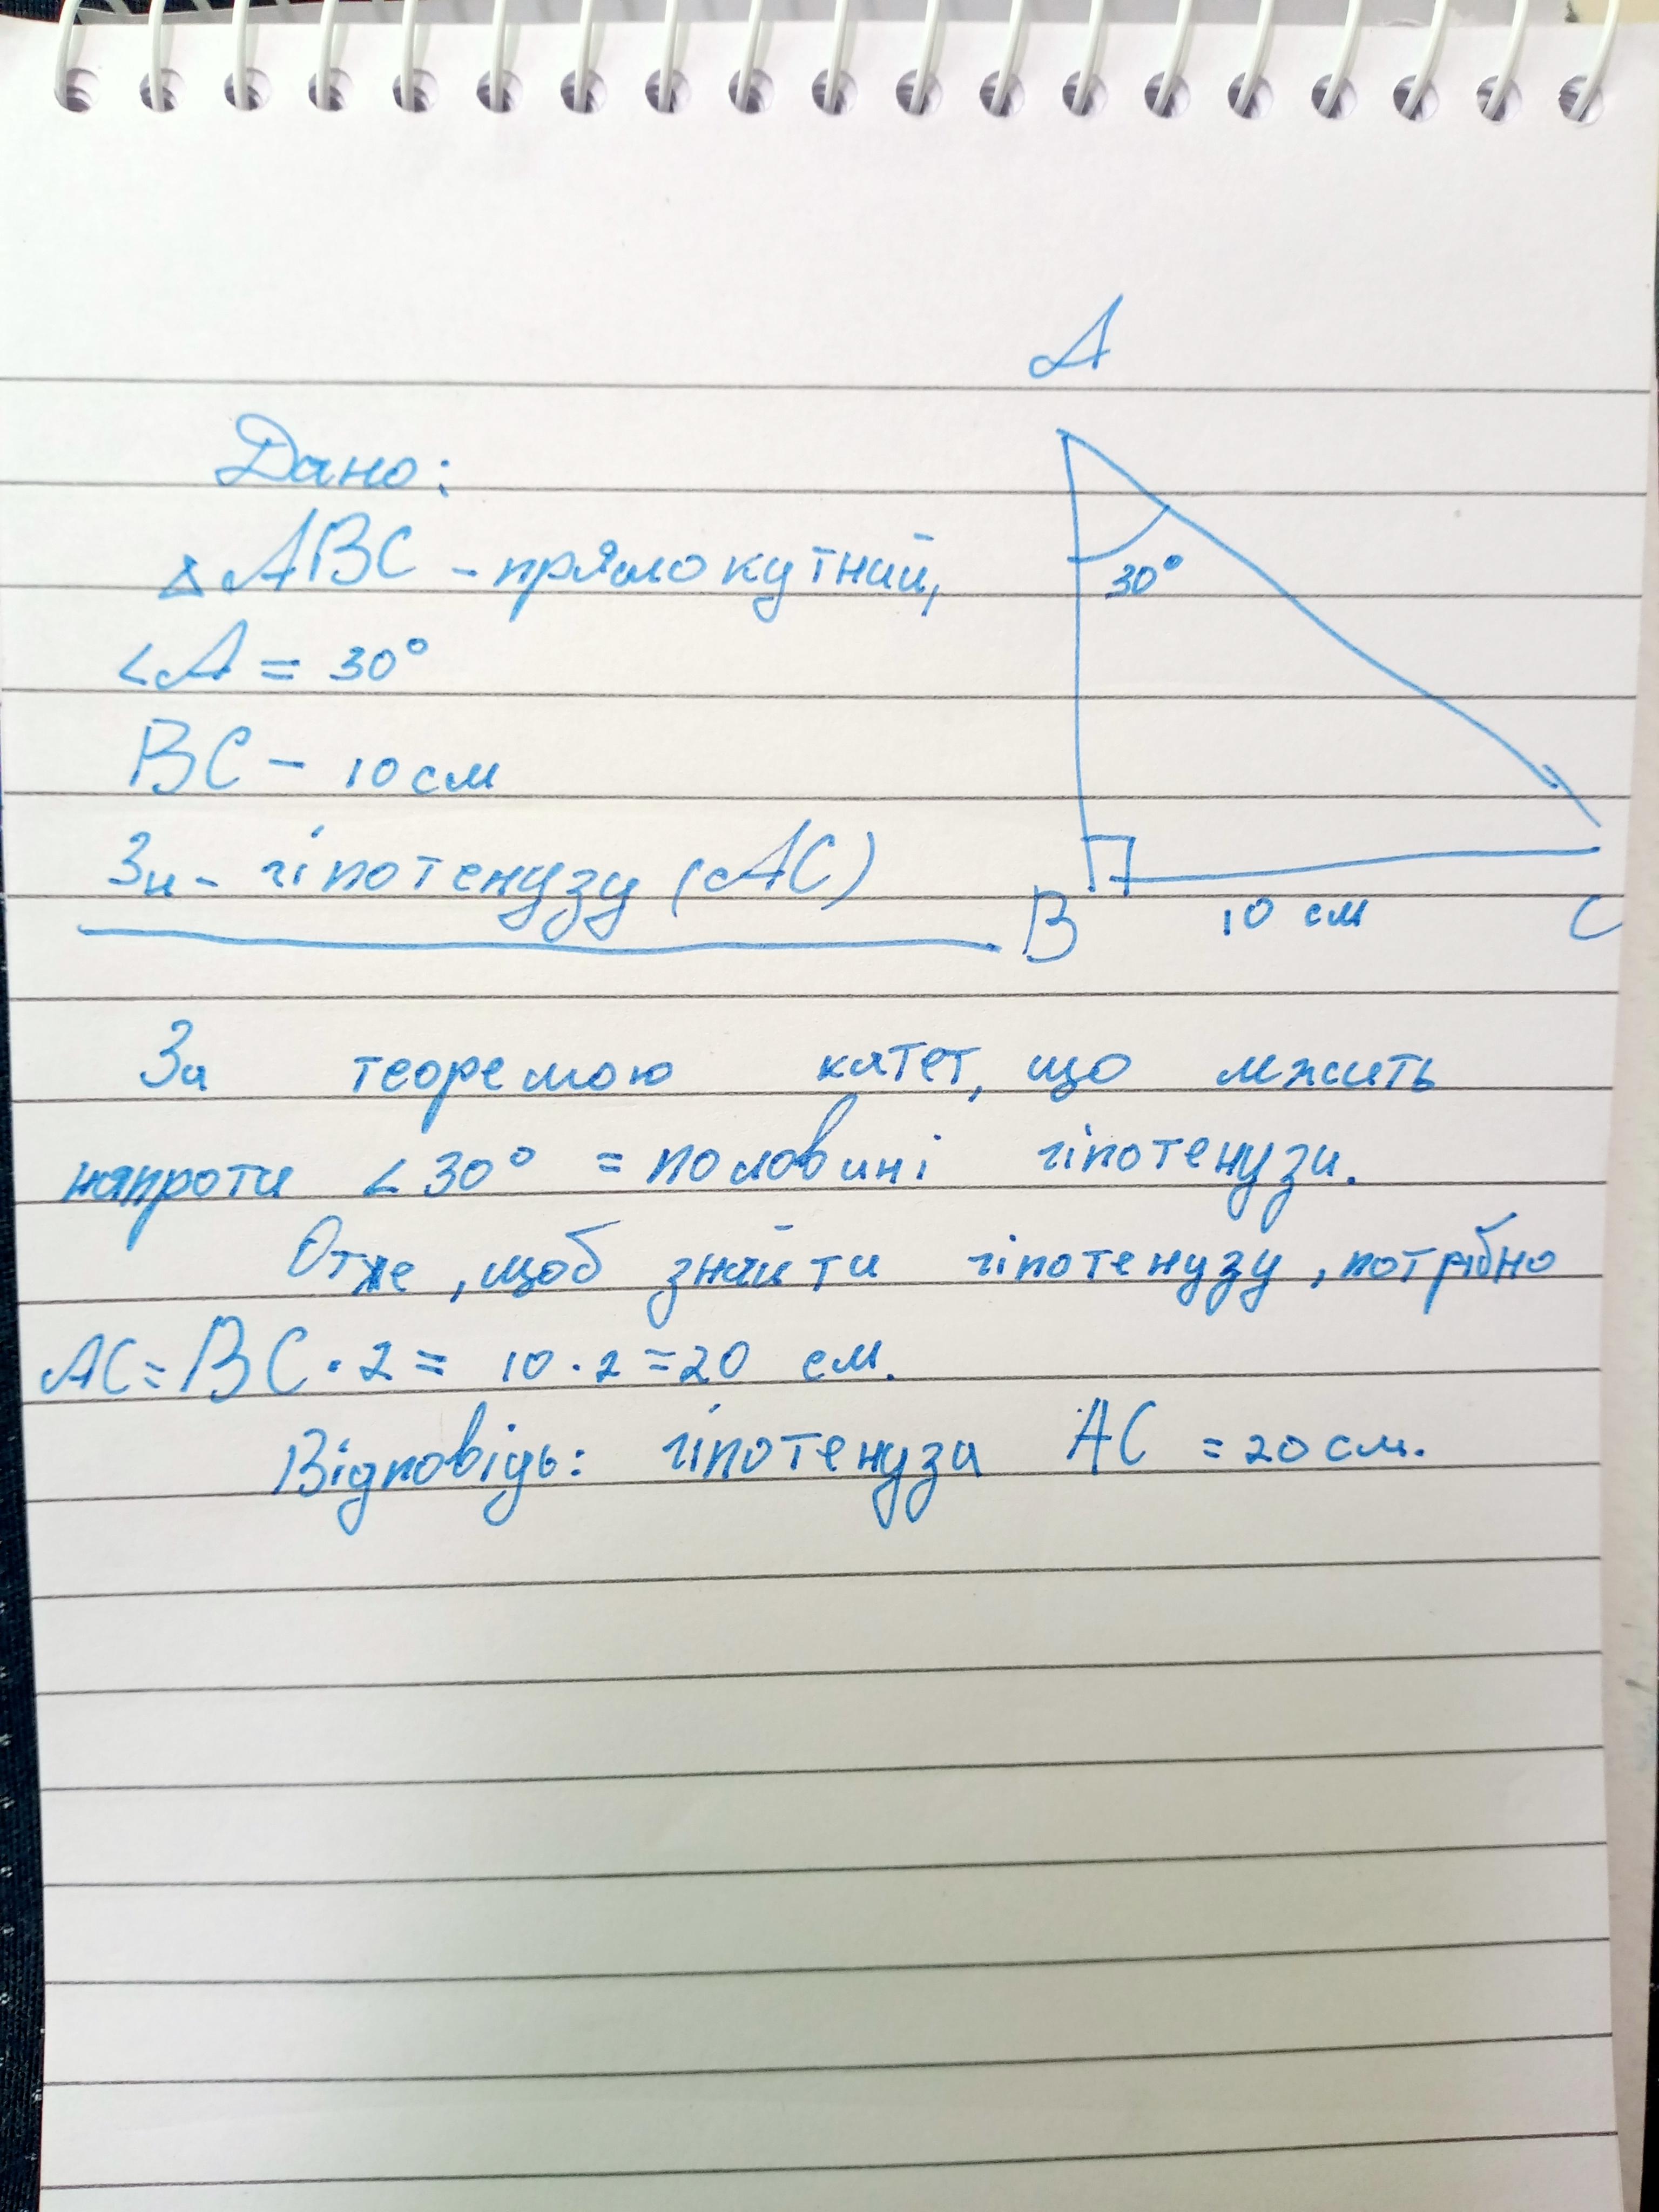 A
Дано:
△ ABC - прямокутний,
∠A = 30°
30°
BC - 10 см
Зн- гіпотенузу (AC)
B 10 см C
За теоремою катет, що лжить
напроти ∠30° = половині гіпотенузи.
Отже, щоб знайти гіпотенузу, потрібно
AC = BC · 2 = 10 · 2 = 20 см.
Відповідь: гіпотенуза AC = 20 см.